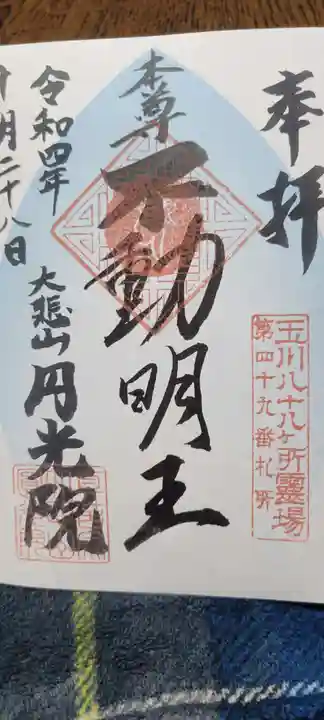 奉拝
玉川八十八ヶ所霊場
第四十九番札所
本尊
不動明王
大悲山円光院
令和四年
十月二十八日